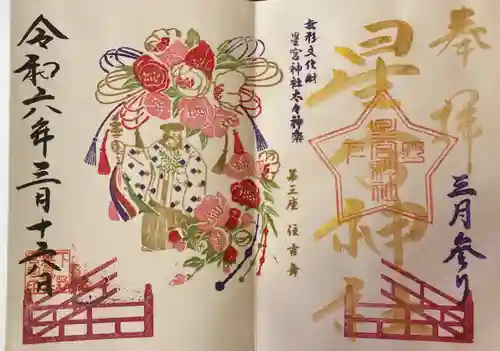 奉拝
三月参り
星宮神社
下野
星宮神社
無形文化財
星宮神社太々神楽
第三座 住吉舞
令和六年三月十六日